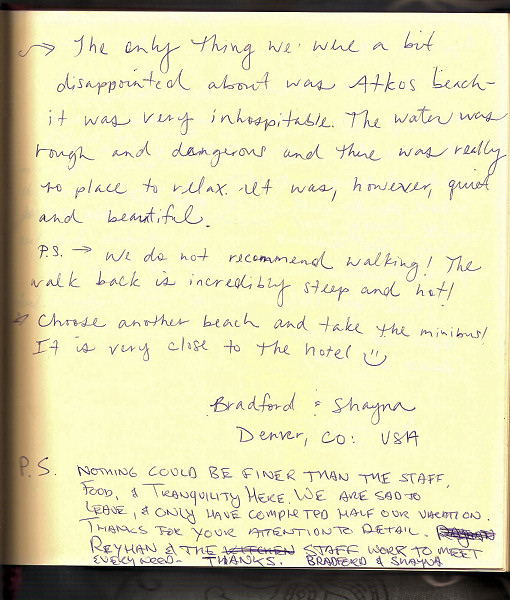 → The only thing we were a bit
disappointed about was Atkos beach-
it was very inhospitable. The water was
rough and dangerous and there was really
no place to relax. It was, however, quiet
and beautiful.
P.S. → We do not recommend walking! The
walk back is incredibly steep and hot!
Choose another beach and take the minibus!
It is very close to the hotel ☺
Bradford & Shayna
Denver, CO: USA
P.S. NOTHING COULD BE FINER THAN THE STAFF,
FOOD, & TRANQUILITY HERE. WE ARE SAD TO
LEAVE, & ONLY HAVE COMPLETED HALF OUR VACATION.
THANKS FOR YOUR ATTENTION TO DETAIL.
REYHAN & THE KITCHEN STAFF WORK TO MEET
EVERY NEED- THANKS. BRADFORD & SHAYNA